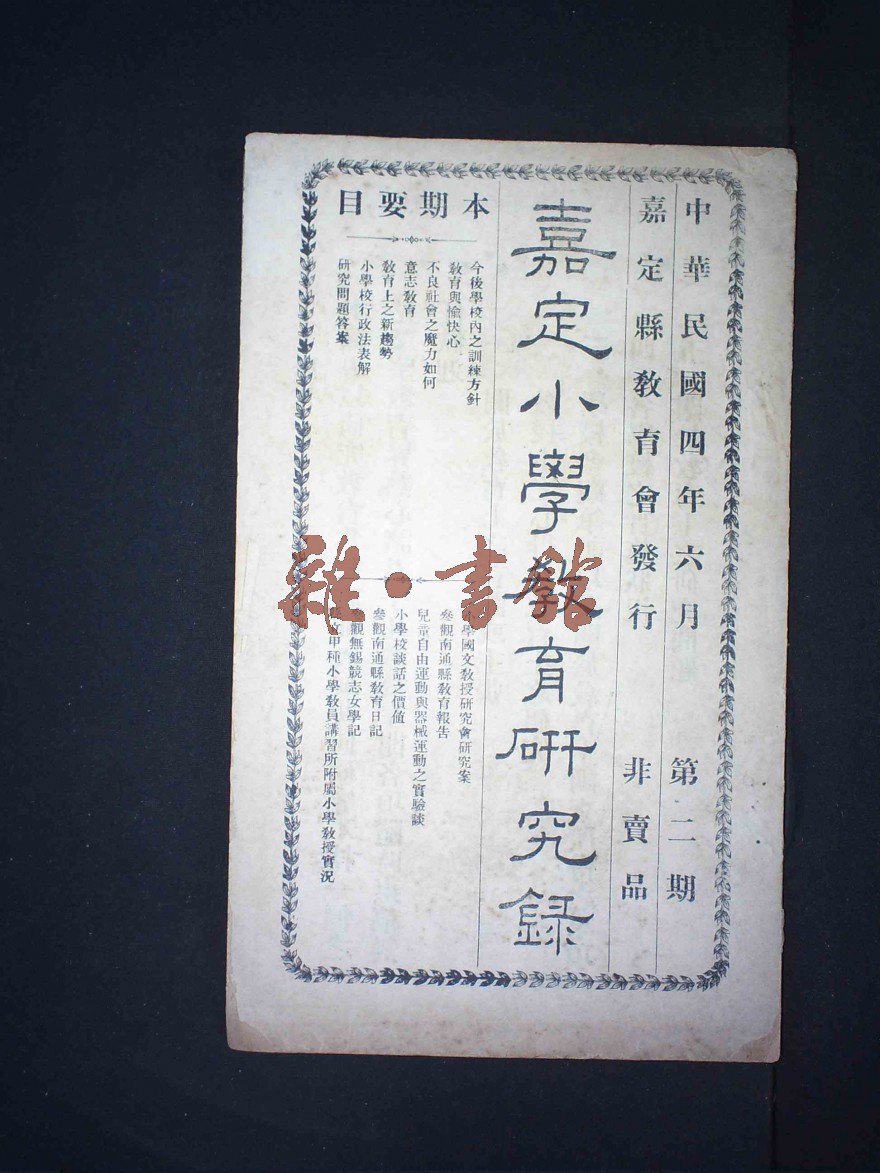 中華民國四年六月　第二期
嘉定縣教育會發行　非賣品
嘉定小學教育研究録
本期要目
今後學校內之訓練方針
教育與愉快心
不良社會之魔力如何
意志教育
教育上之新趨勢
小學校行政法表解
研究問題答案
小學國文教授研究會研究案
參觀南通縣教育報告
兒童自由運動與器械運動之實驗談
小學校談話之價值
參觀南通縣教育日記
觀無錫競志女學記
甲種小學教員講習所附屬小學教授實況
雜·書館